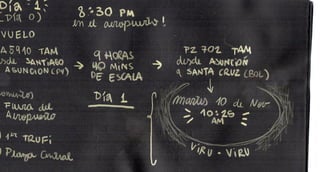 Día 1:
(Día 0)
8:30 PM
en el aeropuerto!
VUELO
A5910 TAM
sde SANTIAGO
ASUNCIÓN (PY)
→ 9 HORAS
40 MINS
DE ESCALA
→ PZ 702 TAM
desde ASUNCIÓN
a SANTA CRUZ (BOL)
Día 1
Martes 10 de Nov
10:25
AM
VIRU - VIRU
Fuera del
Aeropuerto
1 TRUFI
Plaza Central